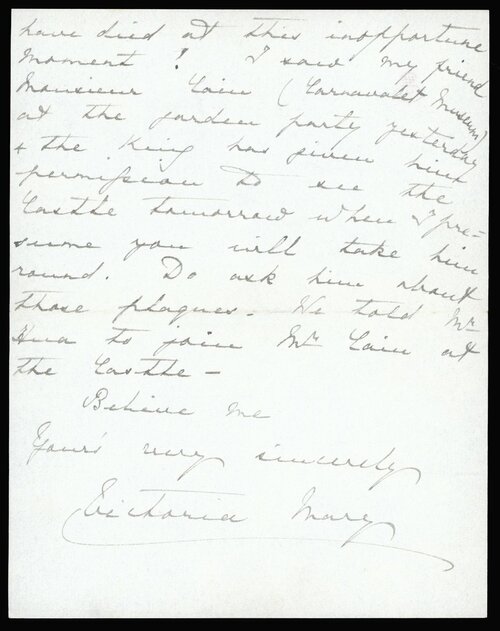 have died at this inopportune
moment! I saw my friend
Monsieur Cain (Carnavalet Museum)
at the garden party yesterday
& the King has given him
permission to see the
Castle tomorrow when I pre-
sume you will take him
round. Do ask him about
those plaques. We told Mr
Hua to join Mr Cain at
the Castle -
Believe me
Yours very sincerely
Victoria Mary